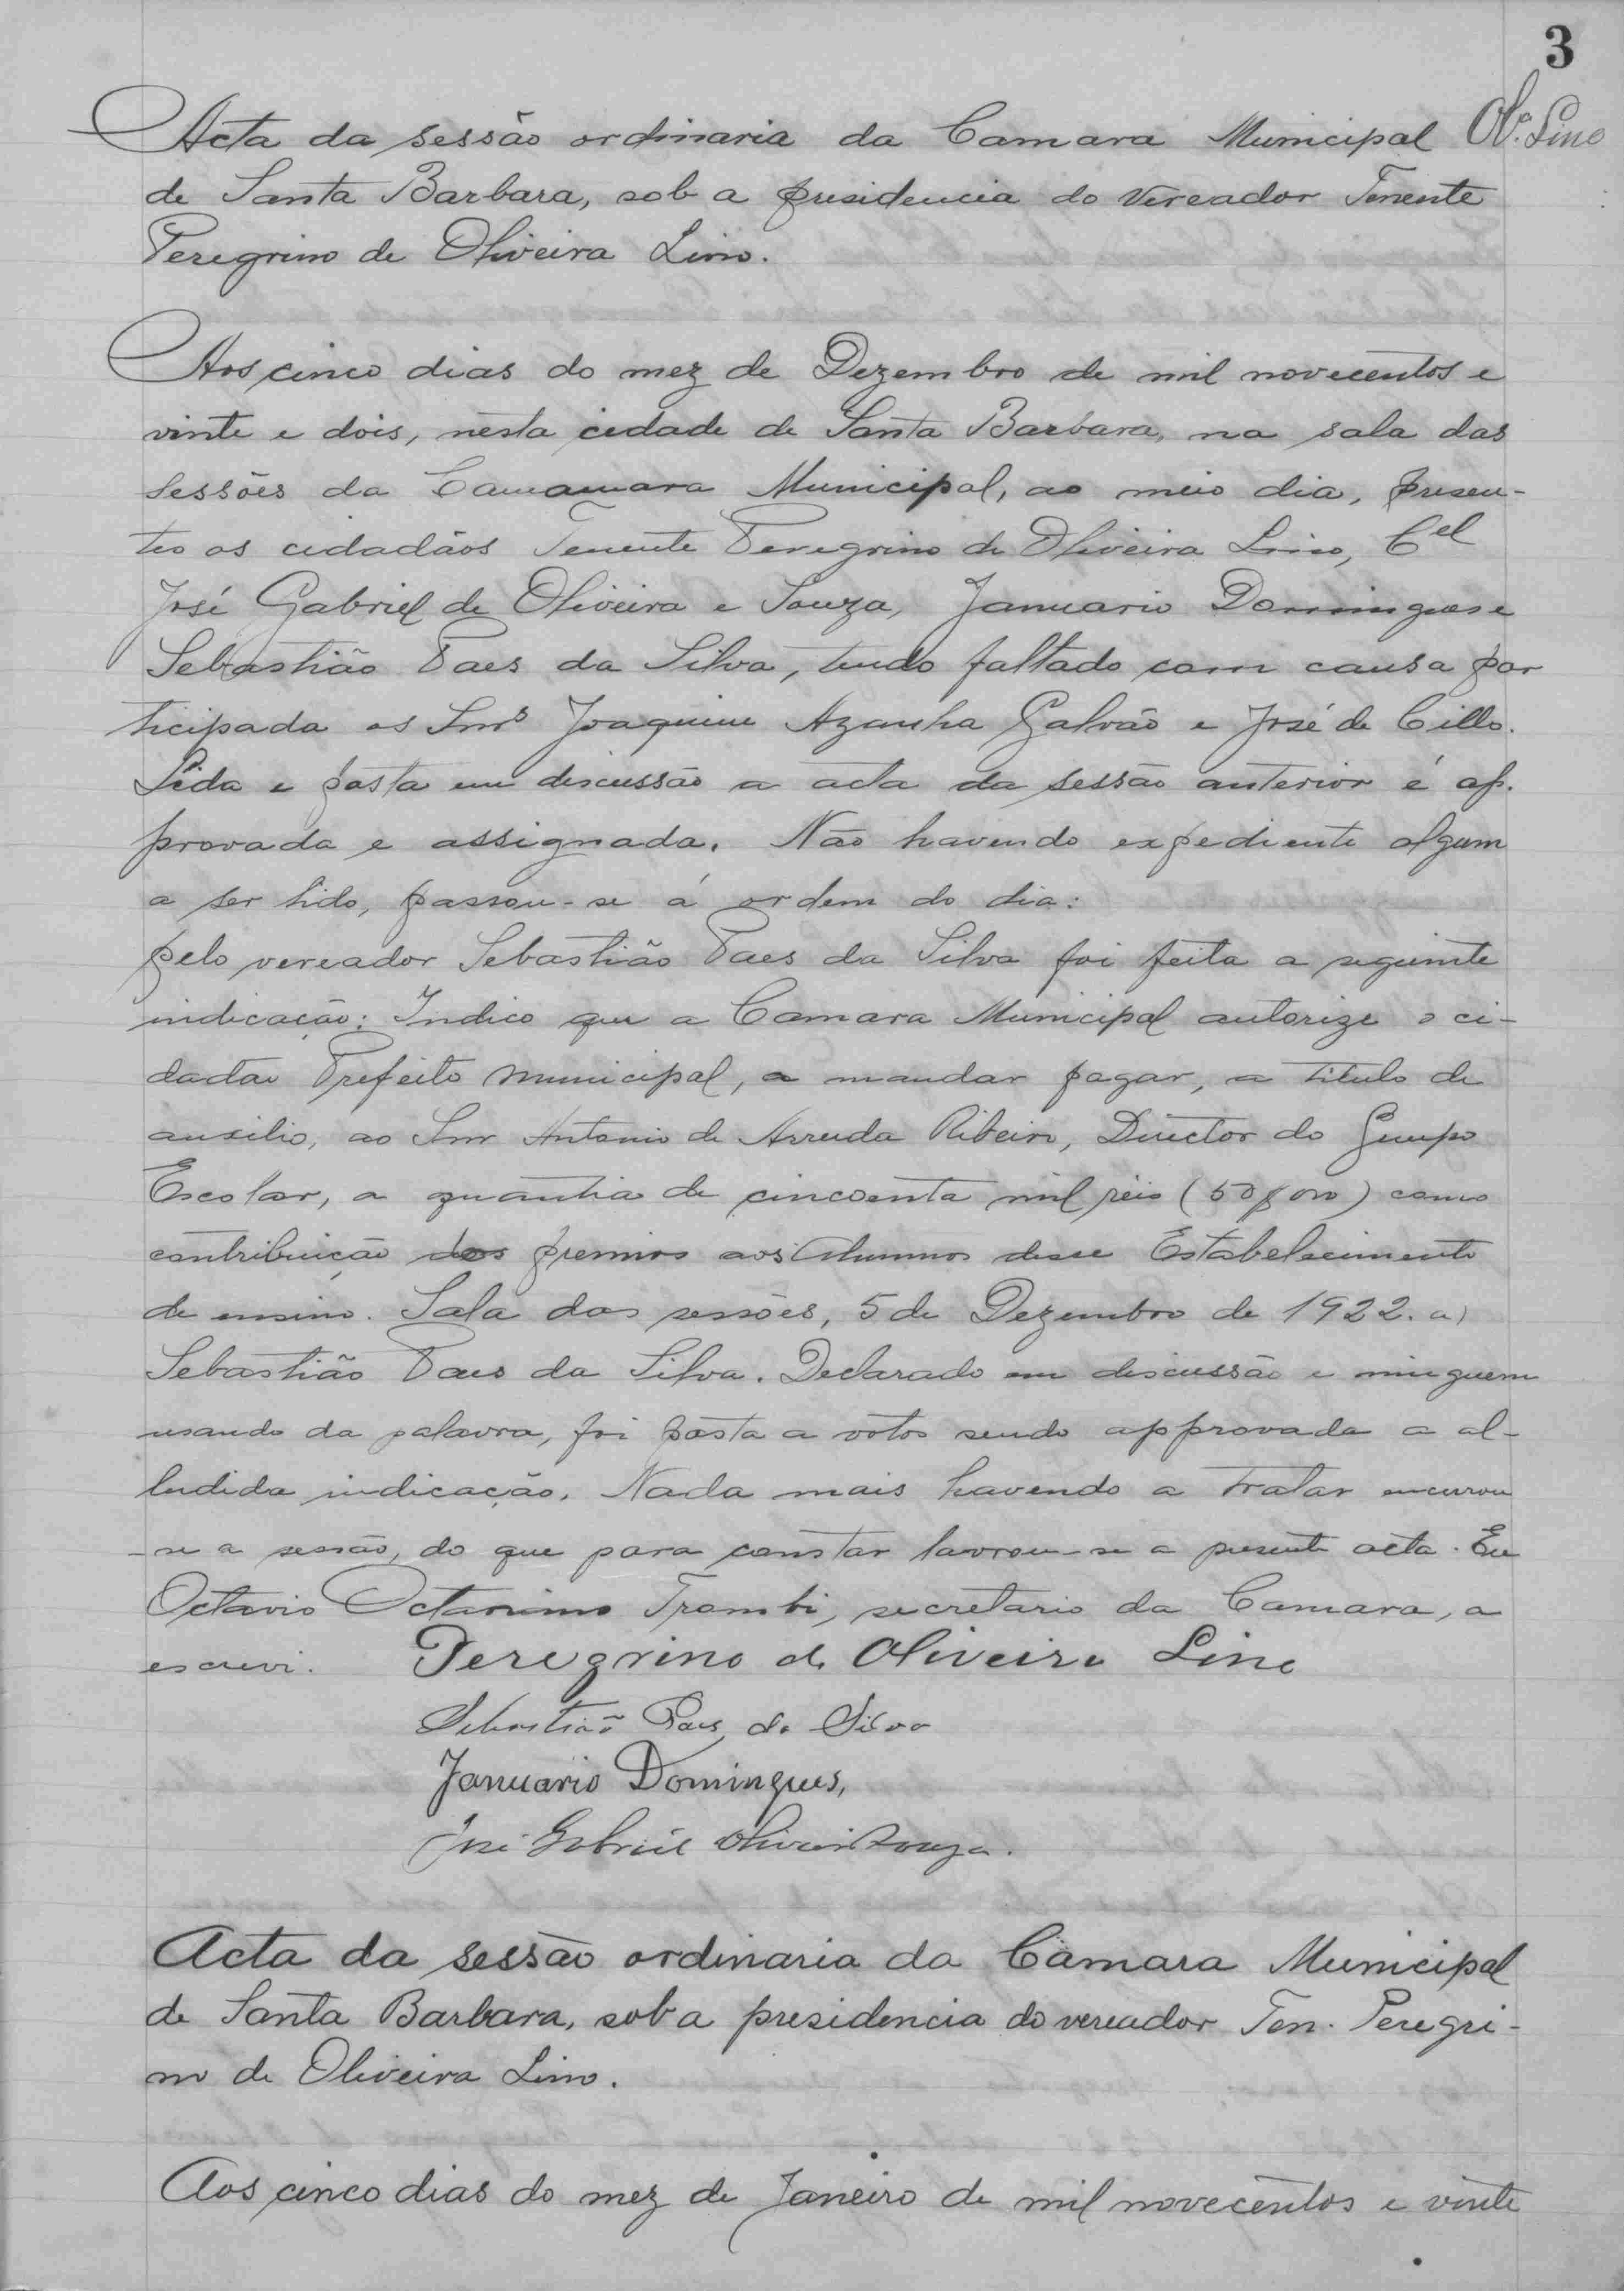 3
Olª. Lino
Acta da sessão ordinaria da Camara Municipal
de Santa Barbara, sob a presidencia do Vereador Tenente
Peregrino de Oliveira Lino.
Aos cinco dias do mez de Dezembro de mil novecentos e
vinte e dois, nesta cidade de Santa Barbara, na sala das
sessões da Camamara Municipal, ao meio dia, presen-
tes os cidadãos Tenente Peregrino de Oliveira Lino, Cel
José Gabriel de Oliveira e Souza, Januario Domingues e
Sebastião Paes da Silva, tendo faltado com causa par
ticipada os Snrs Joaquim Azanha Galvão e José de Cillo.
Lida e posta em discussão a acta da sessão anterior é ap-
provada e assignada. Não havendo expediente algum
a ser lido, passou-se á ordem do dia:
pelo vereador Sebastião Paes da Silva foi feita a seguinte
indicação: Indico que a Camara Municipal autorize o ci-
dadão Prefeito Municipal, a mandar pagar, a titulo de
auxilio, ao Snr Antonio de Arruda Ribeiro, Director do Grupo
Escolar, a quantia de cincoenta mil réis (50$000) como
contribuição dos premios aos Alumnos desse Estabelecimento
de ensino. Sala das sessões, 5 de Dezembro de 1922. a)
Sebastião Paes da Silva. Declarado em discussão e ninguem
usando da palavra, foi posta a votos sendo approvada a al-
ludida indicação. Nada mais havendo a tratar encerrou
-se a sessão, do que para constar lavrou-se a presente acta. Eu
Octavio Octaviano Trombi, secretario da Camara, a
escrevi. Peregrino de Oliveira Lino
Sebastião Paes da Silva
Januario Domingues,
José Gabriel Oliveira Souza.
Acta da sessão ordinaria da Camara Municipal
de Santa Barbara, sob a presidencia do vereador Ten. Peregri-
no de Oliveira Lino.
Aos cinco dias do mez de Janeiro de mil novecentos e vinte